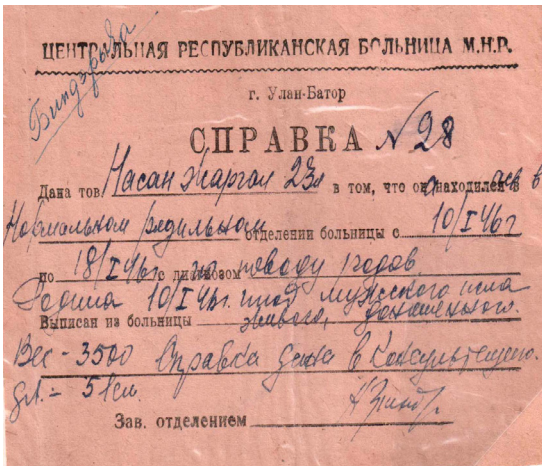 Биндэръяа
ЦЕНТРАЛЬНАЯ РЕСПУБЛИКАНСКАЯ БОЛЬНИЦА М.Н.Р.
г. Улан-Батор
СПРАВКА №28
Дана тов. Насан Жаргал 23л в том, что она находилась в
Нормальном родильном отделении больницы с 10/I 46г
по 18/I 46г с диагнозом по поводу родов.
Родила 10/I 46г. плод мужского пола
Выписан из больницы живого, доношенного.
Вес - 3500 Справка дана в Консультацию.
дл. - 51см.
Зав. отделением